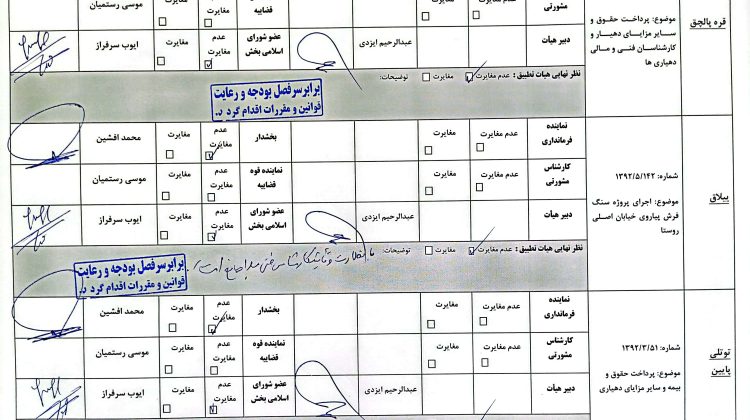 قره پالچق
موضوع: پرداخت حقوق و
سایر مزایای دهیار و
کارشناسان فنی و مالی
دهیاری ها
مشورتی
عدم مغایرت
مغایرت
قضاییه
عدم
مغایرت
مغایرت
موسی رستمیان
دبیر هیات
عبدالرحیم ایزدی
عضو شورای
اسلامی بخش
عدم
مغایرت
مغایرت
ایوب سرفراز
نظر نهایی هیات تطبیق: عدم مغایرت مغایرت توضیحات:
برابر سرفصل بودجه و رعایت
قوانین و مقررات اقدام گردد.
ییلاق
شماره: ۱۳۹۲/۵/۱۴۲
موضوع: اجرای پروژه سنگ
فرش پیاروی خیابان اصلی
روستا
نماینده
فرمانداری
عدم مغایرت
مغایرت
بخشدار
عدم
مغایرت
مغایرت
محمد افشین
کارشناس
مشورتی
عدم مغایرت
مغایرت
نماینده قوه
قضاییه
عدم
مغایرت
مغایرت
موسی رستمیان
دبیر هیات
عبدالرحیم ایزدی
عضو شورای
اسلامی بخش
عدم
مغایرت
مغایرت
ایوب سرفراز
نظر نهایی هیات تطبیق: عدم مغایرت مغایرت توضیحات:
برابر سرفصل بودجه و رعایت
قوانین و مقررات اقدام گردد.
توتلی
پایین
شماره: ۱۳۹۲/۳/۵۱
موضوع: پرداخت حقوق و
بیمه و سایر مزایای دهیاری
نماینده
فرمانداری
عدم مغایرت
مغایرت
بخشدار
عدم
مغایرت
مغایرت
محمد افشین
کارشناس
مشورتی
عدم مغایرت
مغایرت
نماینده قوه
قضاییه
عدم
مغایرت
مغایرت
موسی رستمیان
دبیر هیات
عبدالرحیم ایزدی
عضو شورای
اسلامی بخش
عدم
مغایرت
مغایرت
ایوب سرفراز